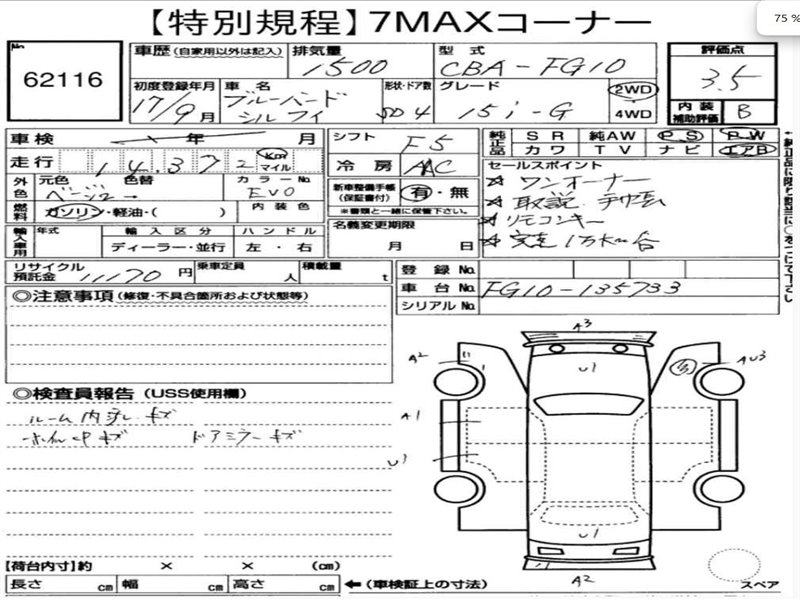 75 %
【特別規程】7MAXコーナー
No
62116
車歴 (自家用以外は記入)
排気量
1500
型式
CBA-FG10
評価点
3.5
初度登録年月
17/9月
車名
ブルーバード
シルフィ
形状・ドア数
SD 4
グレード
15i-G
2WD
4WD
内装
補助評価
B
車検 年 月
シフト
F5
純正品
SR 純AW PS PW
カワ TV ナビ エアB
走行
14,372 Km
マイル
冷房
AAC
セールスポイント
ワンオーナー
取説
リモコンキー
外色
元色 色替
ベージュ→
カラーNo
EVO
新車整備手帳
(保証書付)
有・無
※書類と一緒に保管下さい。
燃料
ガソリン・軽油・( )
内装色
名義変更期限
月 日
輸入車用
年式
輸入区分
ディーラー・並行
ハンドル
左・右
リサイクル
預託金
11170 円
乗車定員
人
積載量
t
登録No.
車台No.
FG10-135733
シリアルNo.
◎注意事項 (修復・不具合箇所および状態等)
◎検査員報告 (USS使用欄)
ルーム内 キズ
キズ ドアミラーキズ
A3
A2
U1
AU3
A1
U1
U1
A2
【荷台内寸】約 × × (cm)
長さ cm 幅 cm 高さ cm
←(車検証上の寸法)
スペア